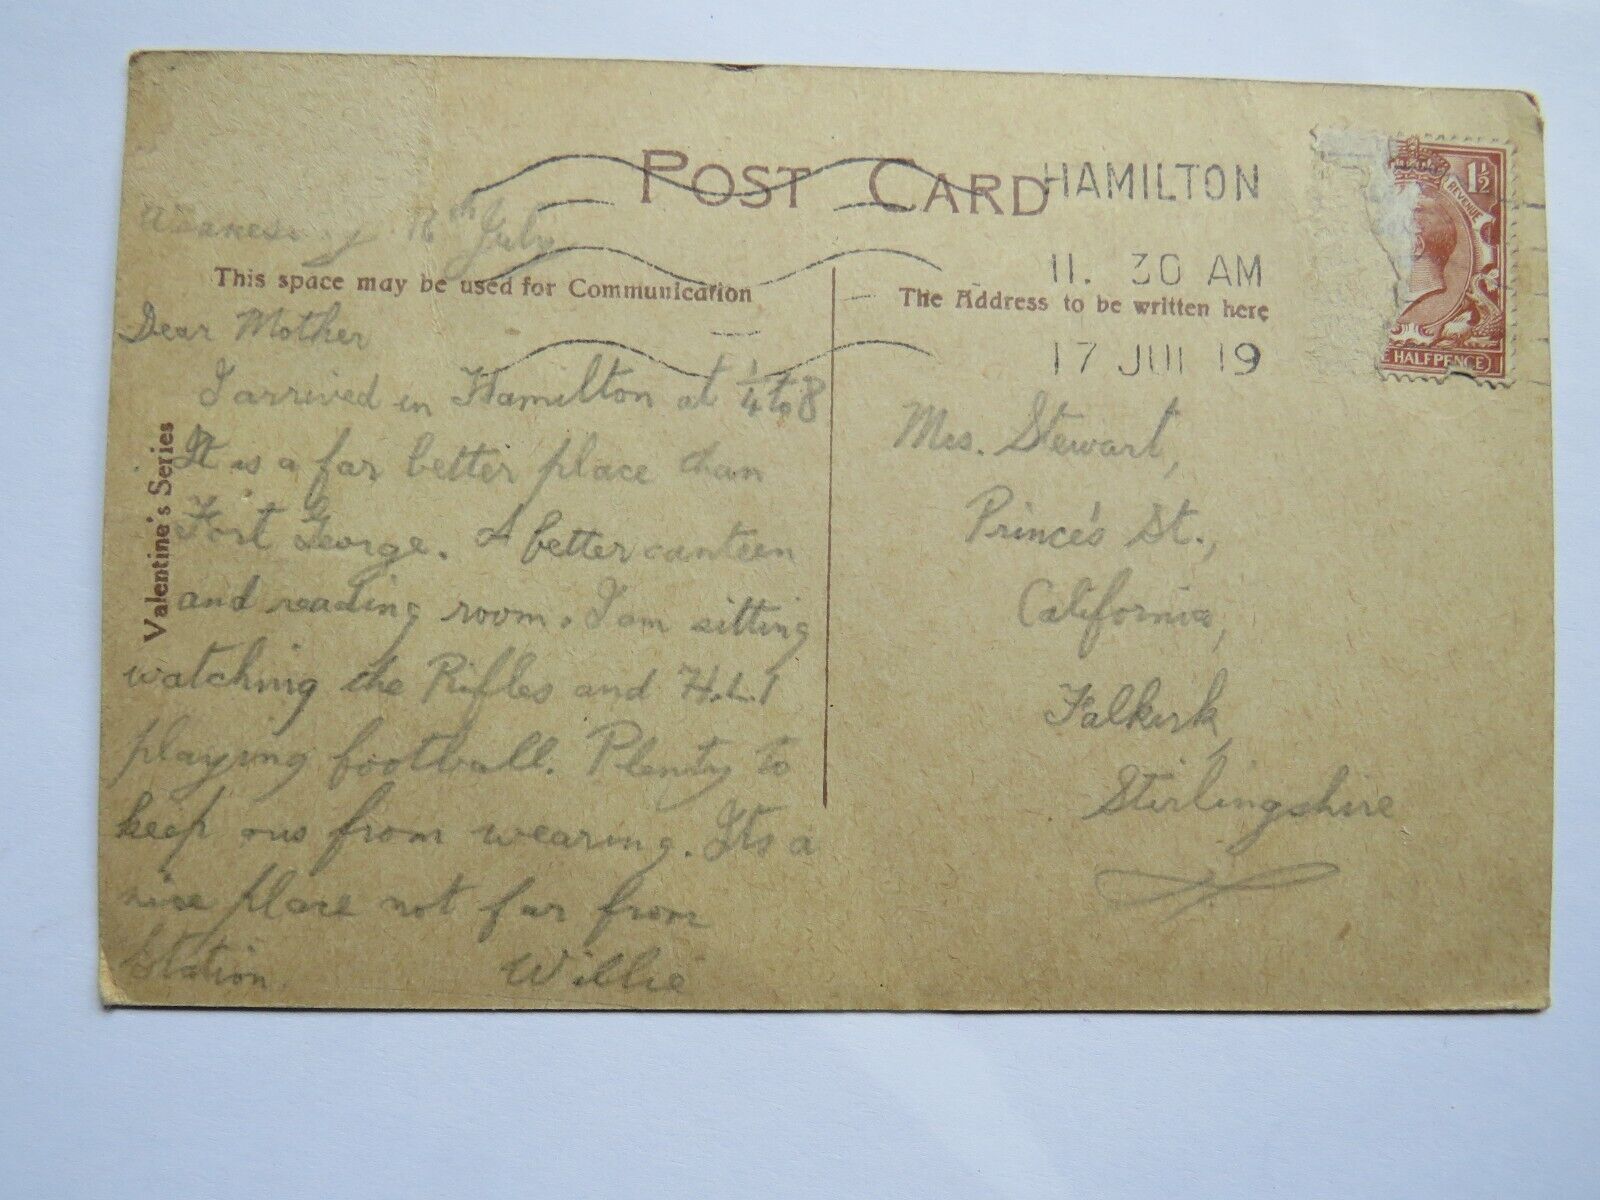 POST CARD
HAMILTON
11. 30 AM
17 JUL 19
1½
REVENUE
E HALFPENCE
16th July
This space may be used for Communication
The Address to be written here
Valentine's Series
Dear Mother
I arrived in Hamilton at ¼ to 8
It is a far better place than
Fort George. A better canteen
and reading room. I am sitting
watching the Rifles and H.L.I
playing football. Plenty to
keep ous from wearing. Its a
nice place not far from
Station. Willie
Mrs. Stewart,
Prince's St.,
California,
Falkirk,
Stirlingshire